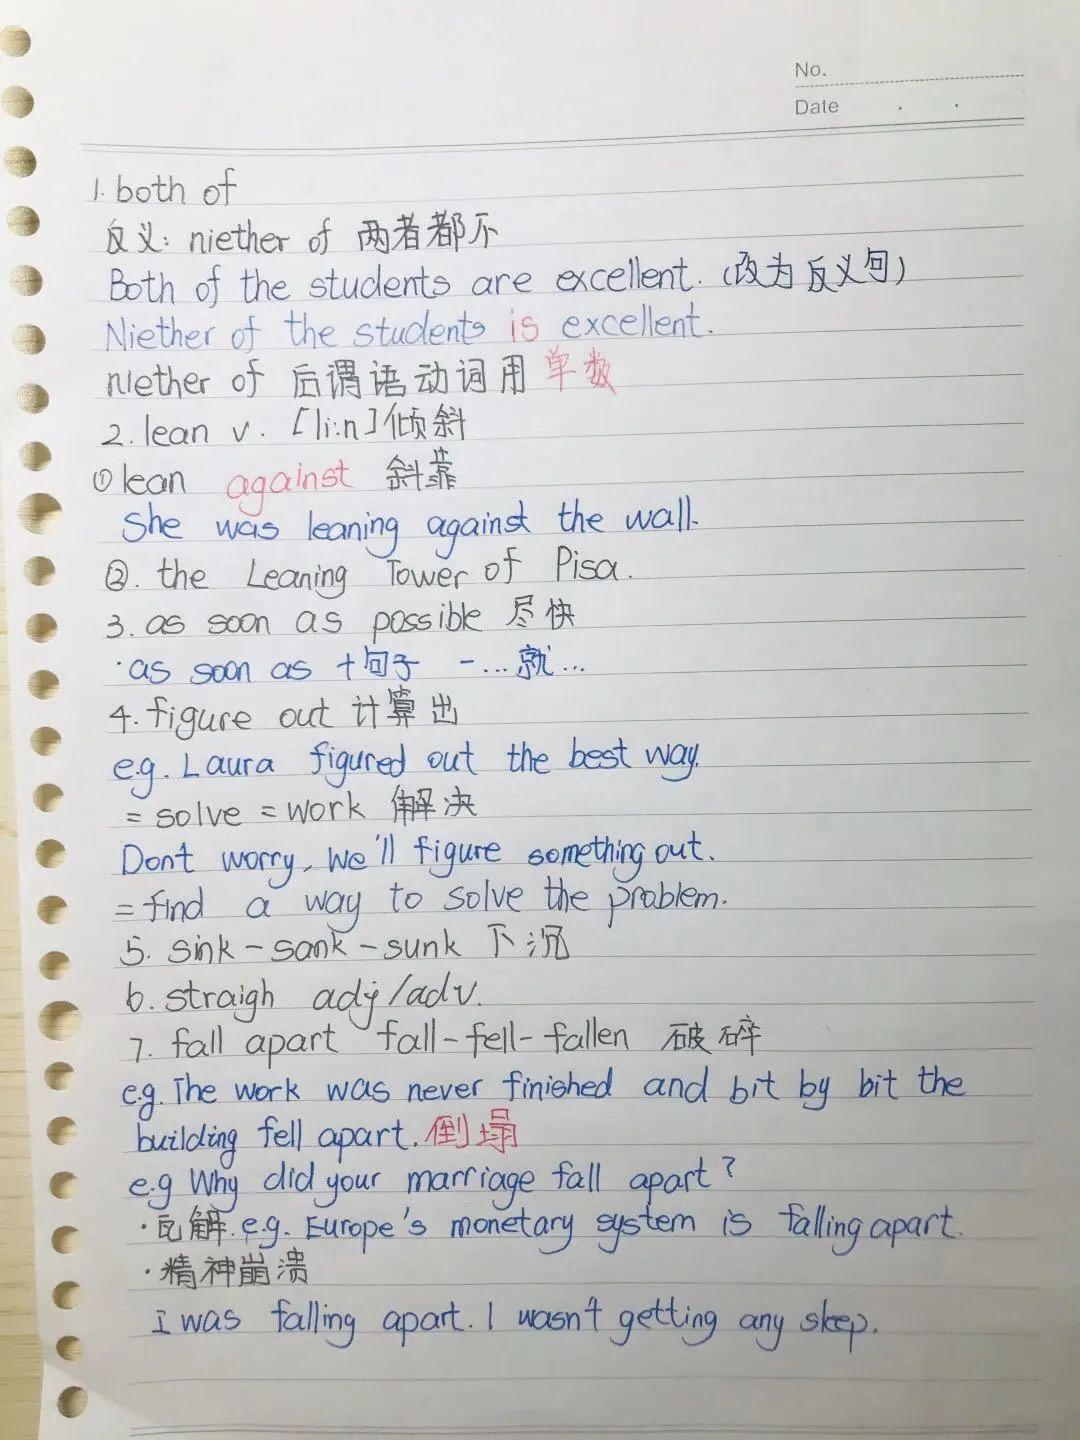 No.
Date . .
1. both of
反义: niether of 两者都不
Both of the students are excellent. (改为反义句)
Niether of the students is excellent.
niether of 后谓语动词用 单数
2. lean v. [li:n] 倾斜
① lean against 斜靠
She was leaning against the wall.
②. the Leaning Tower of Pisa.
3. as soon as possible 尽快
·as soon as +句子 一...就...
4. figure out 计算出
e.g. Laura figured out the best way.
= solve = work 解决
Don't worry, We'll figure something out.
= find a way to solve the problem.
5. sink-sank-sunk 下沉
6. straigh adj/adv.
7. fall apart fall-fell-fallen 破碎
e.g. The work was never finished and bit by bit the
building fell apart. 倒塌
e.g Why did your marriage fall apart?
·瓦解. e.g. Europe's monetary system is falling apart.
·精神崩溃
I was falling apart. I wasn't getting any sleep.